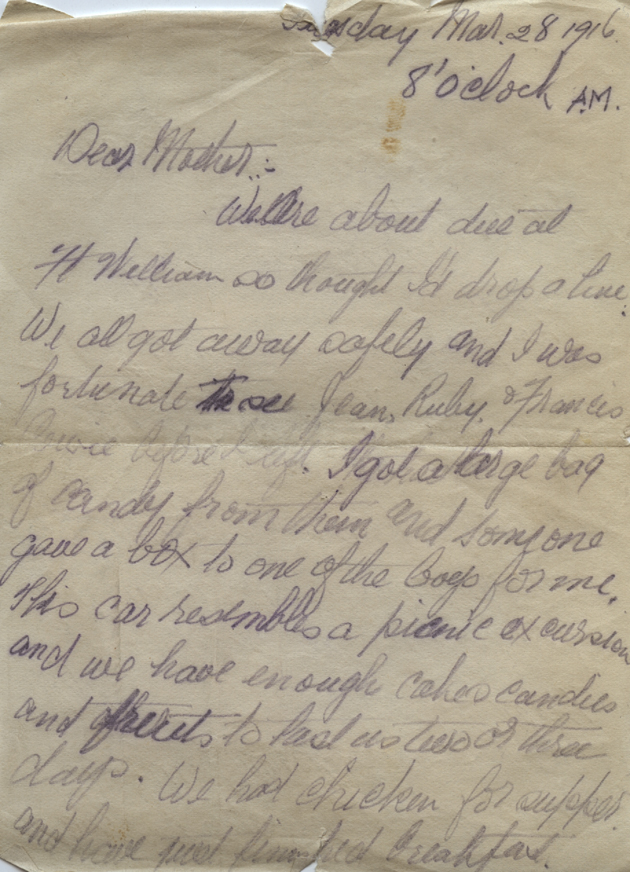 Tuesday Mar. 28 1916.
8 'Oclock A.M.
Dear Mother:-
We are about due at
Ft William so thought I'd drop a line.
We all got away safely and I was
fortunate to see Jean, Ruby, & Francis
before I left. I got a large bag
of candy from them and someone
gave a box to one of the boys for me.
This car resembles a picnic excursion
and we have enough cakes candies
and fruits to last us two or three
days. We had chicken for supper
and have just finished breakfast.